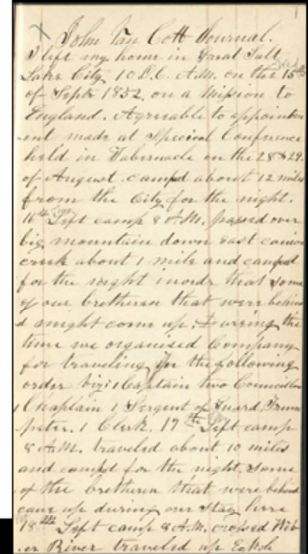 John Van Cott Journal.
I left my home in Great Salt
Lake City, 10 A.M. on the 15th
of Septr 1852, on a Mission to
England. Agreeable to appointm
ent made at Special Conference
held in Tabernacle on the 28 & 29
of August. campd about 12 miles
from the City for the night.
16th Left camp 8 A.M. passed over
big mountain down east
creek about 1 mile and campd
for the night inorder that some
of our bretheren that were behind
might come up. During the
time we organised Company
for traveling in the following
order viz: 1 Captain two Councillors
1 Chaplain 1 Sergent of Guard Trum
peter. 1 Clerk. 17th Left camp
8 A.M. traveled about 10 miles
and campd for the night. Some
of the bretheren that were behind
came up during our stay here
18th Left camp 8 A.M. crossed Web
er River traveled up Echoh